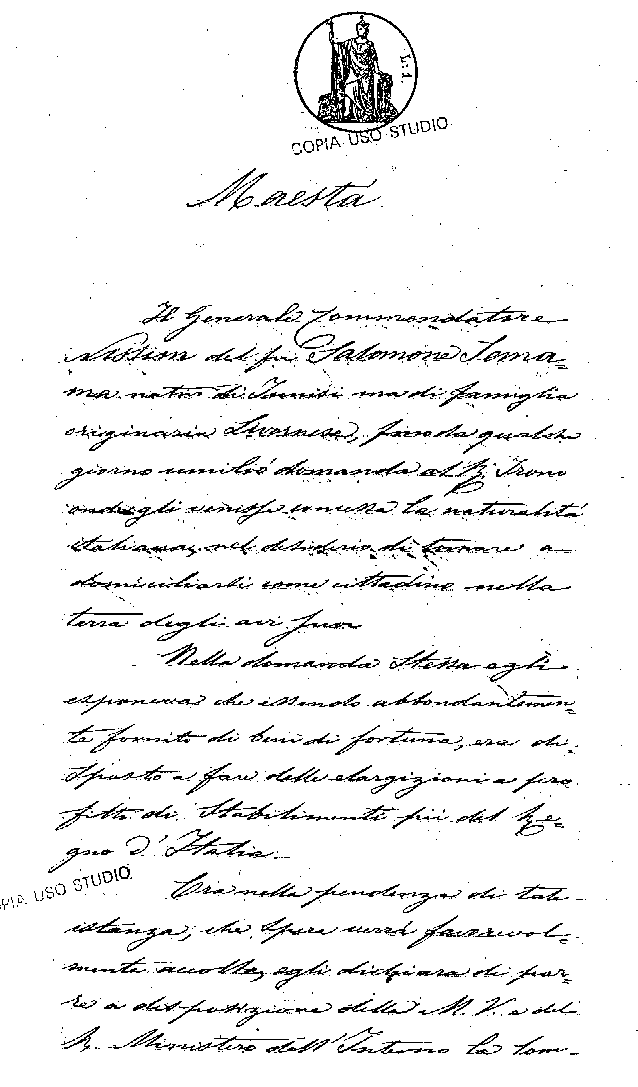 L: 1.
COPIA USO STUDIO
Maestà
Il Generale Commendatore
Nissim del fu Salomone Sama=
ma nato di Tunisi ma di famiglia
originaria Livornese, faceva qualche
giorno umiliò domanda al R. Trono
ondegli venisse concessa la naturalità
italiana, nel desiderio di tornare a
domiciliarsi come cittadino nella
terra degli avi suoi
Nella domanda stessa egli
esponeva che essendo abbondantemen=
te fornito di beni di fortuna, era di=
sposto a fare delle elargizioni a pro
fitto di Stabilimenti pii del Re=
gno d'Italia.
Ora nella pendenza di tale
istanza, che spera verrà favorevol=
mente accolta, egli dichiara di por=
re a disposizione della M. V. e del
R. Ministro dell'Interno la som=
COPIA USO STUDIO